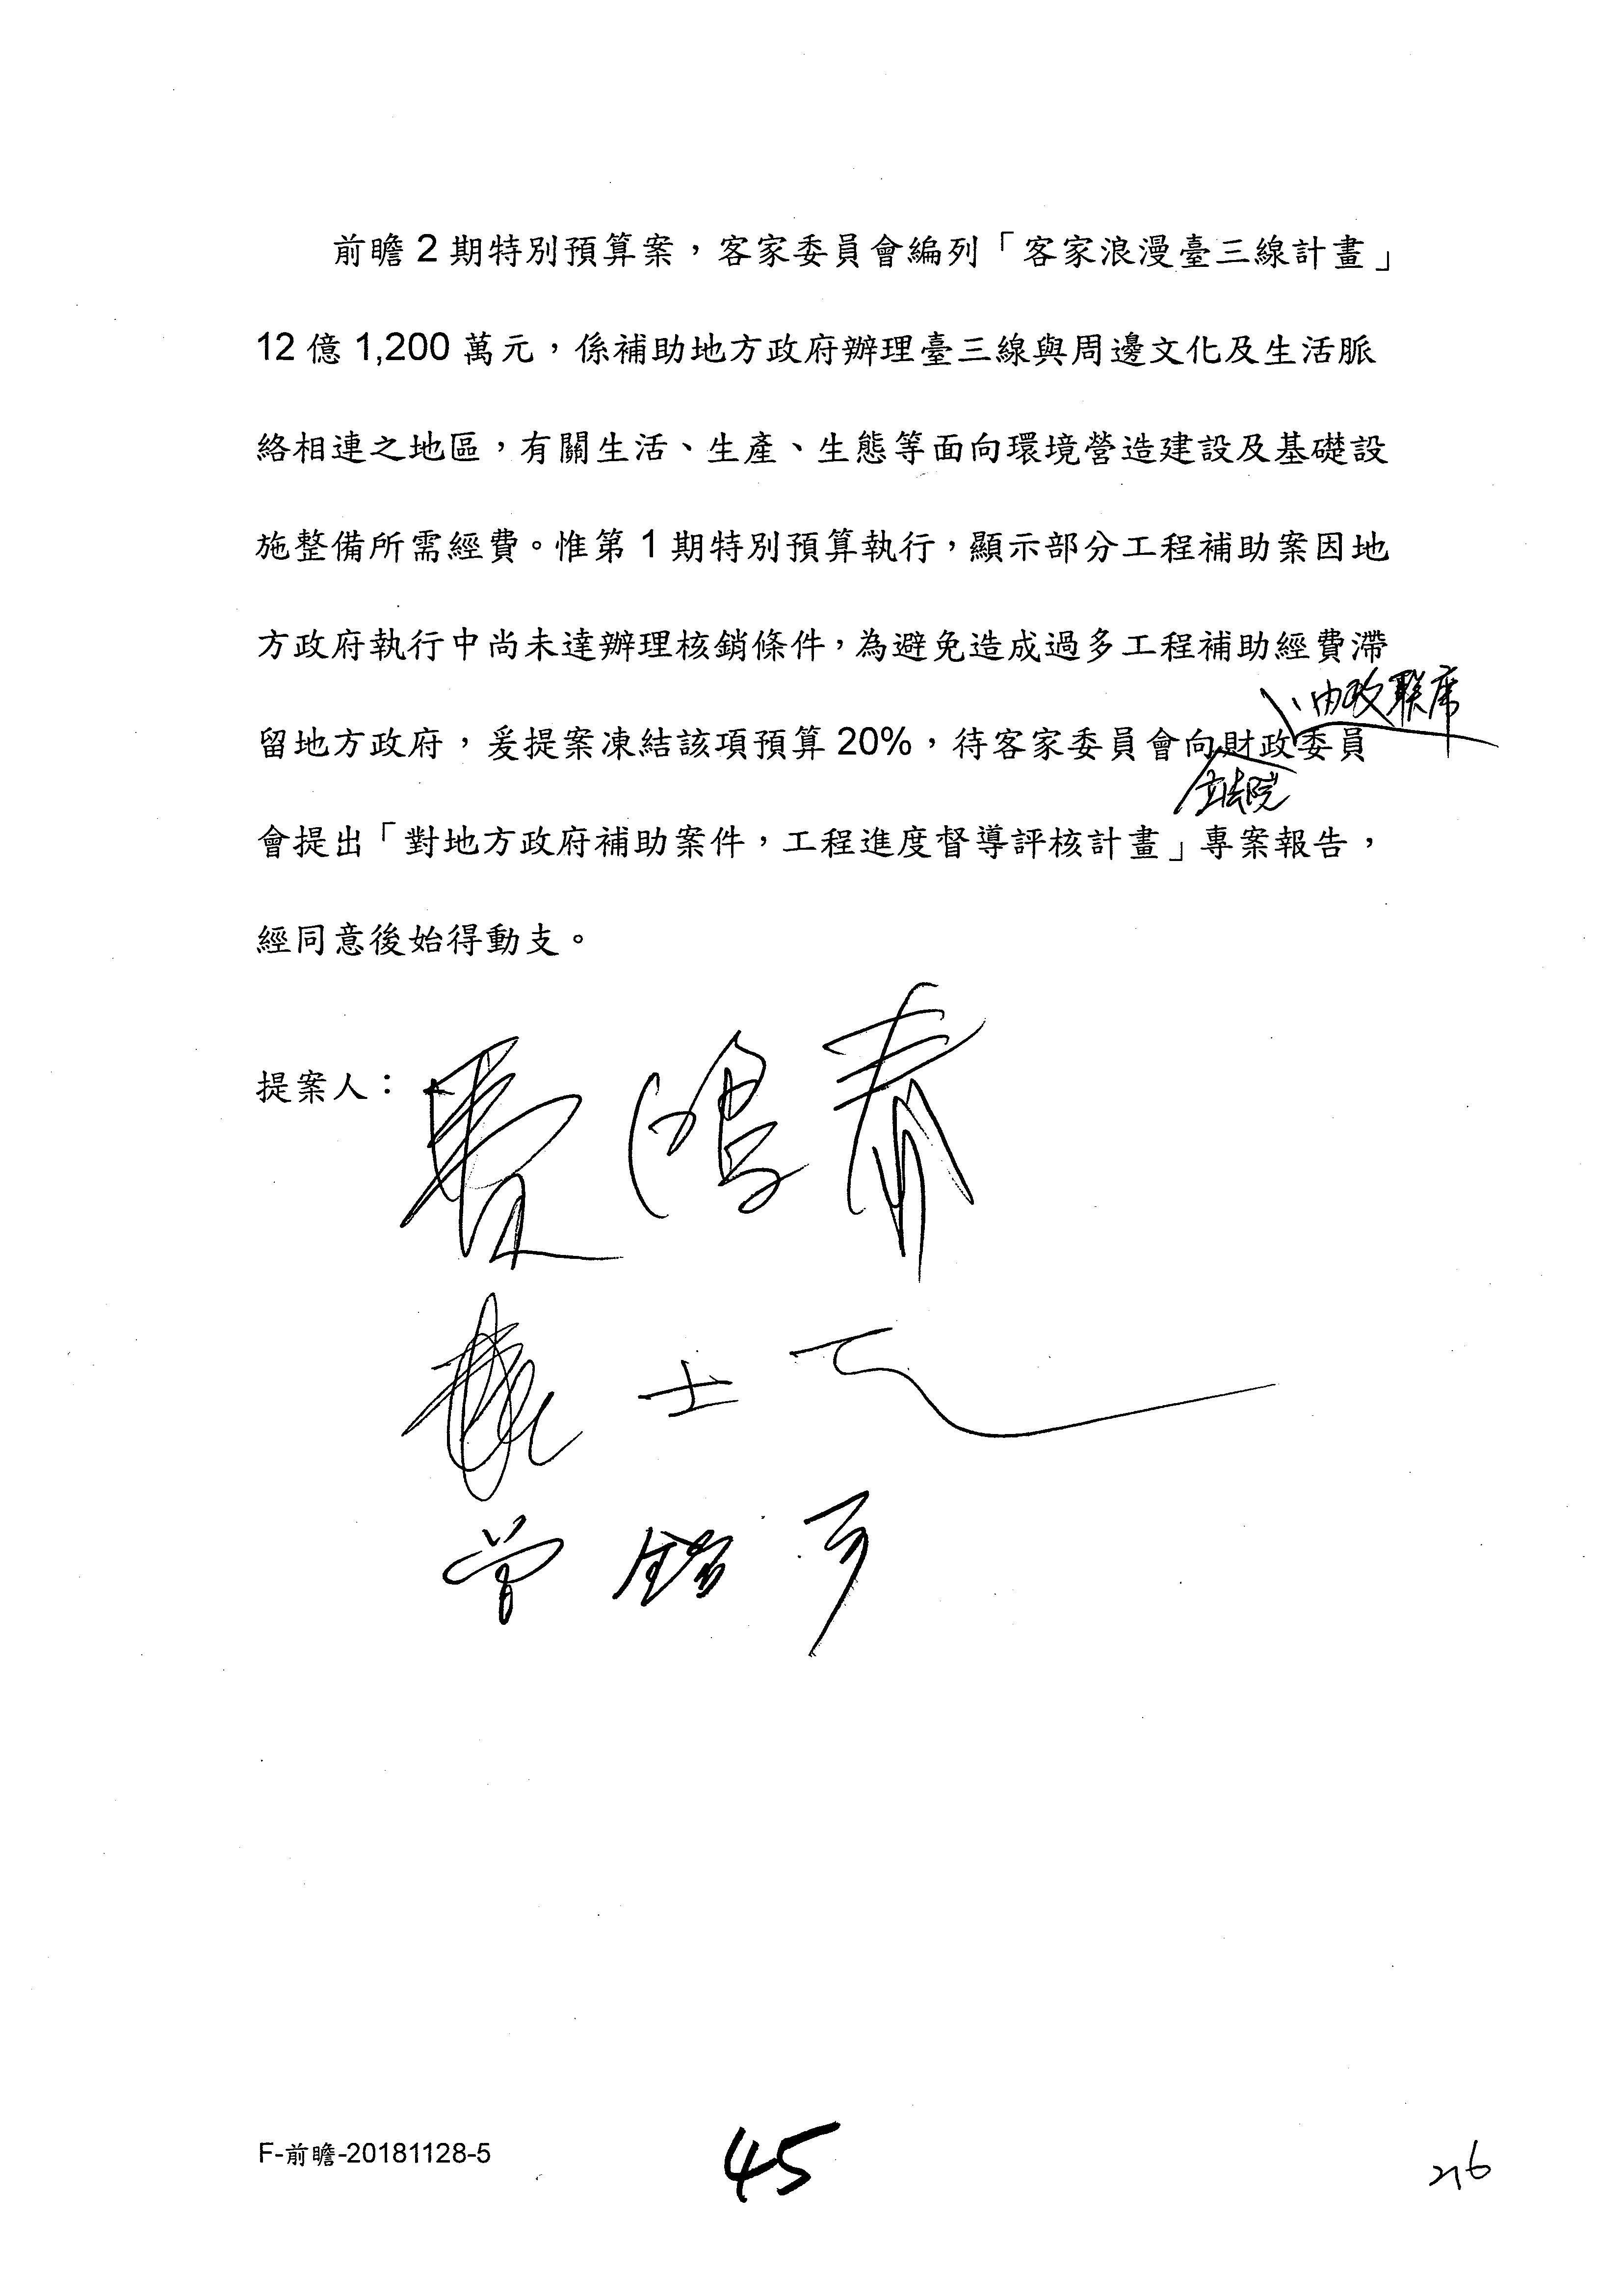 前瞻2期特別預算案，客家委員會編列「客家浪漫臺三線計畫」
12億1,200萬元，係補助地方政府辦理臺三線與周邊文化及生活脈
絡相連之地區，有關生活、生產、生態等面向環境營造建設及基礎設
施整備所需經費。惟第1期特別預算執行，顯示部分工程補助案因地
方政府執行中尚未達辦理核銷條件，為避免造成過多工程補助經費滯
、內政聯席
留地方政府，爰提案凍結該項預算20%，待客家委員會向財政委員
立法院
會提出「對地方政府補助案件，工程進度督導評核計畫」專案報告，
經同意後始得動支。
提案人：
費鴻泰
曾銘宗
F-前瞻-20181128-5
45
216